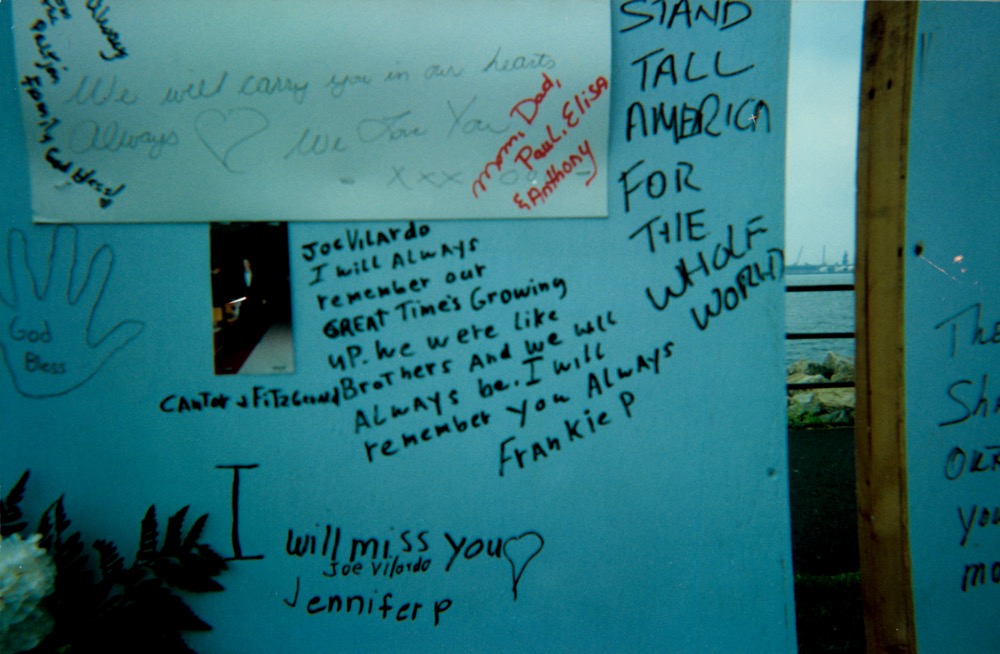 Always
Family God Bless
We will carry you in our hearts
Always We Love You
xxx
Mom, Dad,
Paul, Elisa
& Anthony
STAND
TALL
AMERICA
FOR
THE
WHOLE
WORLD
God
Bless
Joe Vilardo
I will Always
remember our
GREAT Time's Growing
up. We were like
Brothers And we will
Always be. I will
remember you Always
Frankie P
CANTOR & FITZGERALD
I will miss you
Joe Vilardo
Jennifer P
you